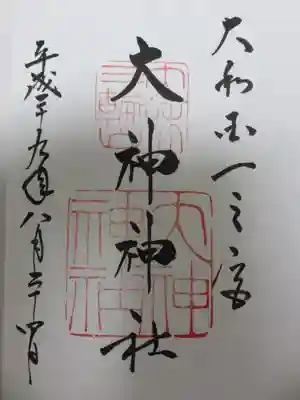 大和国一之宮
大神神社
平成二十九年八月二十四日
大神神社